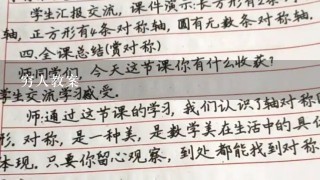 学生汇报交流,课件演示:长方形有2条
轴,正方形有4条对称轴,圆有无数条对称轴.
四.全课总结(赏对称)
师:同学们,今天这节课你有什么收获?
穷人教案
学生交流学习感受.
师:通过这节课的学习,我们认识了轴对称图
形.对称,是一种美,是数学美在生活中的具体
体现.只要你留心观察,到处都能找到对称